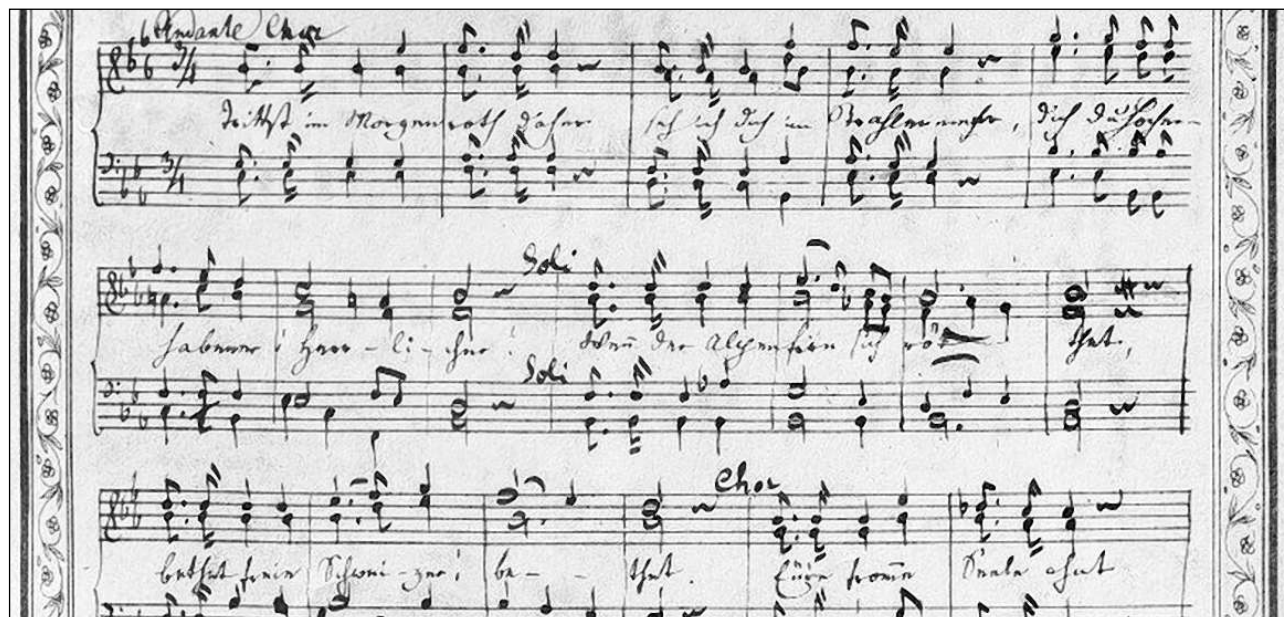 Andante Chor
3/4
Trittst im Morgenroth daher seh ich dich im Strahlenmehr, dich du Hocher-
3/4
Soli
habener! Herr-li-cher! Wenn der Alpenfirn sich rö - thet,
Soli
Chor
bethet freie Schwei-zer! be - - thet. Eure fromme Seele ahnt